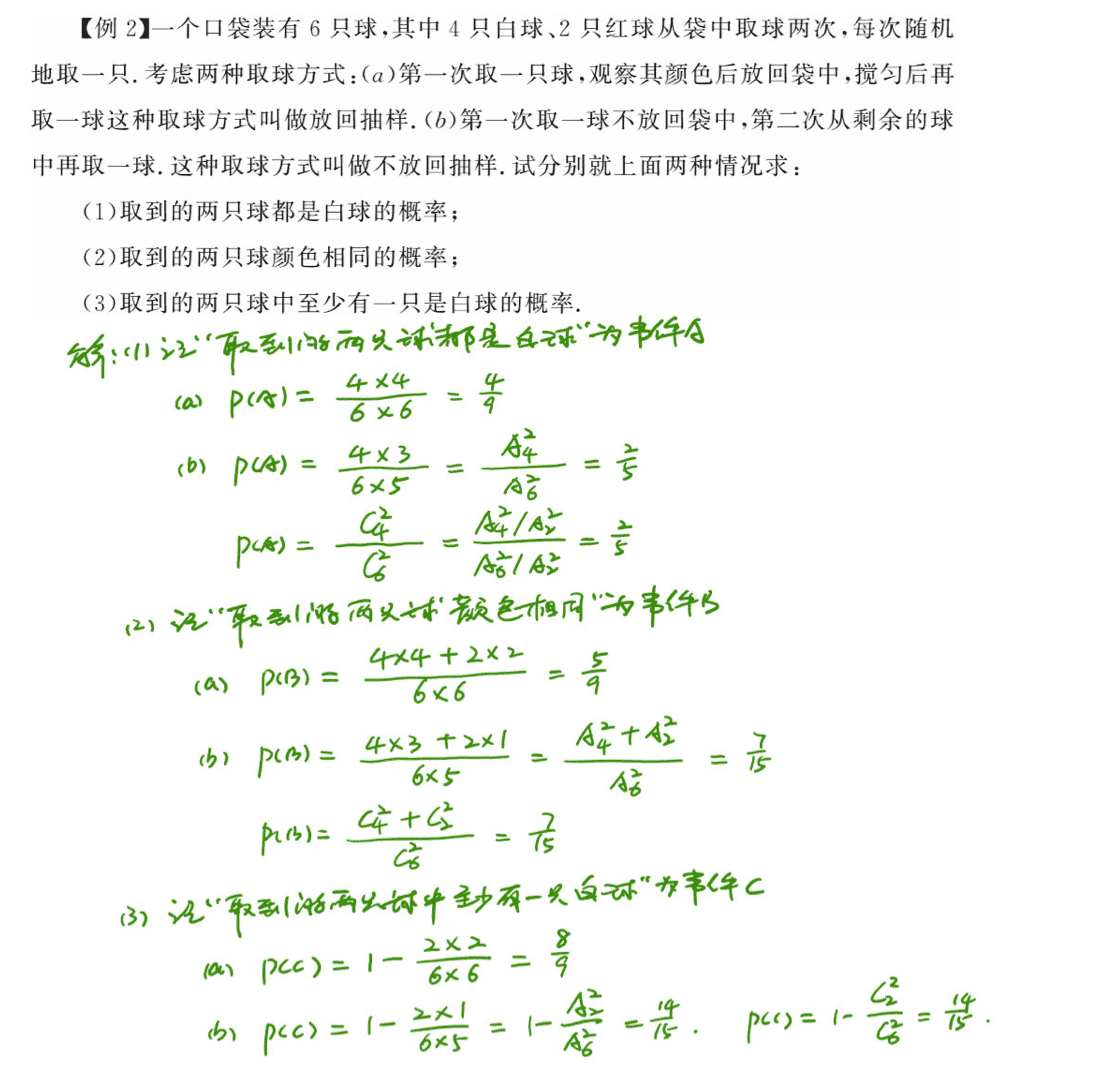 【例 2】一个口袋装有 6 只球,其中 4 只白球、2 只红球从袋中取球两次,每次随机
地取一只.考虑两种取球方式:(a)第一次取一只球,观察其颜色后放回袋中,搅匀后再
取一球这种取球方式叫做放回抽样.(b)第一次取一球不放回袋中,第二次从剩余的球
中再取一球.这种取球方式叫做不放回抽样.试分别就上面两种情况求:
(1)取到的两只球都是白球的概率;
(2)取到的两只球颜色相同的概率;
(3)取到的两只球中至少有一只是白球的概率.
解:(1) 记“取到的两只球都是白球”为事件A
(a) P(A) = \frac{4×4}{6×6} = \frac{4}{9}
(b) P(A) = \frac{4×3}{6×5} = \frac{A_4^2}{A_6^2} = \frac{2}{5}
P(A) = \frac{C_4^2}{C_6^2} = \frac{A_4^2/A_2^2}{A_6^2/A_2^2} = \frac{2}{5}
(2) 记“取到的两只球颜色相同”为事件B
(a) P(B) = \frac{4×4+2×2}{6×6} = \frac{5}{9}
(b) P(B) = \frac{4×3+2×1}{6×5} = \frac{A_4^2+A_2^2}{A_6^2} = \frac{7}{15}
P(B) = \frac{C_4^2+C_2^2}{C_6^2} = \frac{7}{15}
(3) 记“取到的两只球中至少有一只白球”为事件C
(a) P(C) = 1-\frac{2×2}{6×6} = \frac{8}{9}
(b) P(C) = 1-\frac{2×1}{6×5} = 1-\frac{A_2^2}{A_6^2} = \frac{14}{15}. P(C) = 1-\frac{C_2^2}{C_6^2} = \frac{14}{15}.